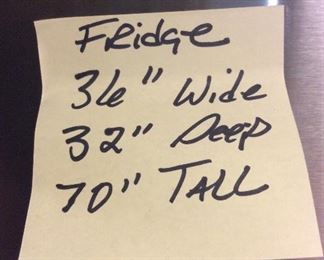 Fridge
36" Wide
32" Deep
70" TALL